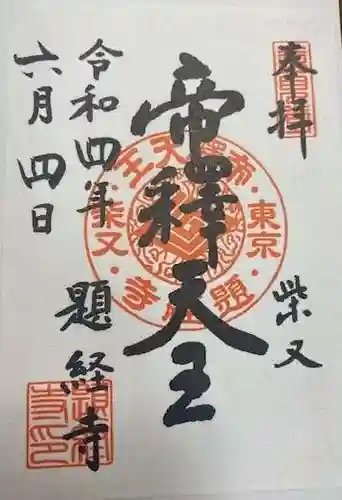 奉拝
柴又
帝釋天王
令和四年
六月四日
題経寺
帝釋天王
東京
柴又
題経寺